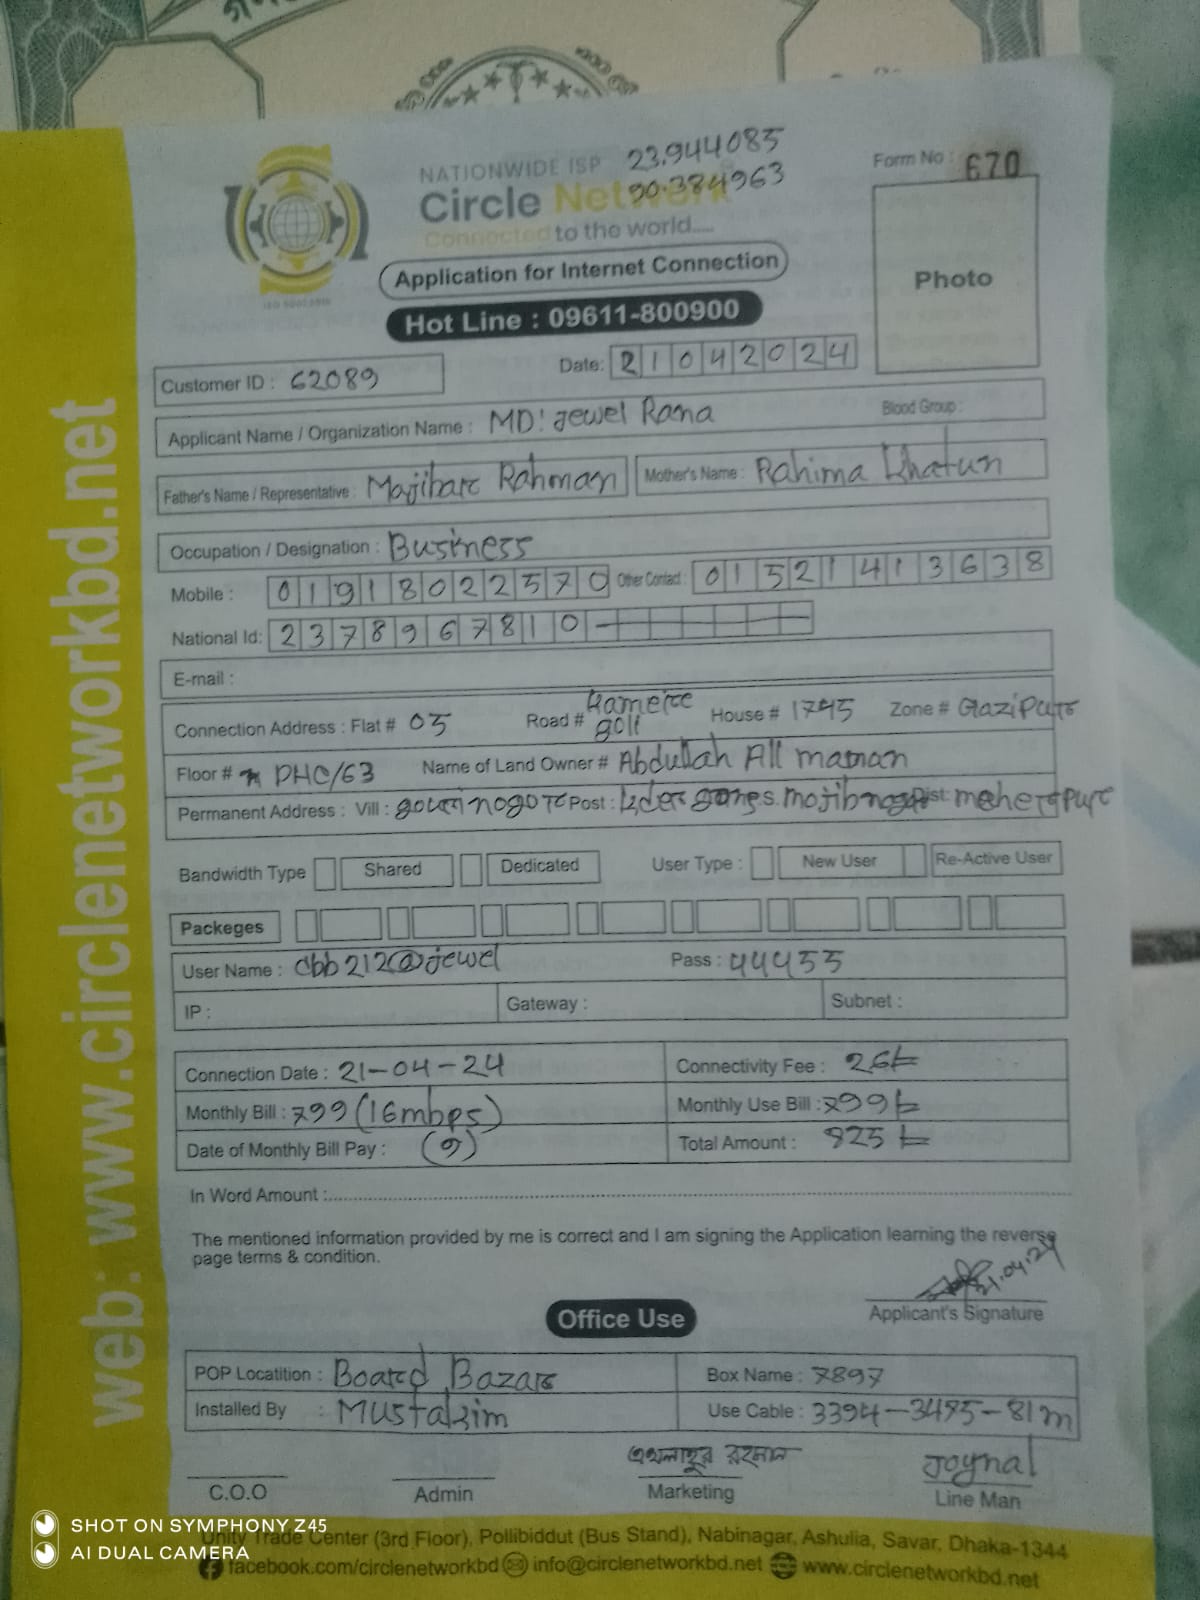 NATIONWIDE ISP 23.944085
Circle Network 90.384963
Connected to the world....
Form No : 670
Application for Internet Connection
Photo
Hot Line : 09611-800900
Date: 21042024
Customer ID : 62089
Applicant Name / Organization Name : MD! Jewel Rana Blood Group :
Father's Name / Representative : Majibar Rahman Mother's Name : Rahima Khatun
Occupation / Designation : Business
Mobile : 01918022570 Other Contact : 01521413638
National Id: 2378967810
E-mail :
Connection Address : Flat # 05 Road # goli House # 1745 Zone # Gazipur
Floor # DHC/63 Name of Land Owner # Abdullah All mamun
Permanent Address : Vill : Post : Dist: meherpur
Bandwidth Type Shared Dedicated User Type : New User Re-Active User
Packeges
User Name : cbb212@jewel Pass : 44455
IP : Gateway : Subnet :
Connection Date : 21-04-24 Connectivity Fee : 26
Monthly Bill : 799 (16mbps) Monthly Use Bill : 799
Date of Monthly Bill Pay : Total Amount : 825
In Word Amount :
The mentioned information provided by me is correct and I am signing the Application learning the reverse
page terms & condition.
21.04.24
Applicant's Signature
Office Use
POP Locatition : Board Bazar Box Name : 7897
Installed By : Mustakim Use Cable : 3394-3475-81m
রহমান Joynal
C.O.O Admin Marketing Line Man
Unity Trade Center (3rd Floor), Pollibiddut (Bus Stand), Nabinagar, Ashulia, Savar, Dhaka-1344
facebook.com/circlenetworkbd info@circlenetworkbd.net www.circlenetworkbd.net
web: www.circlenetworkbd.net
SHOT ON SYMPHONY Z45
AI DUAL CAMERA